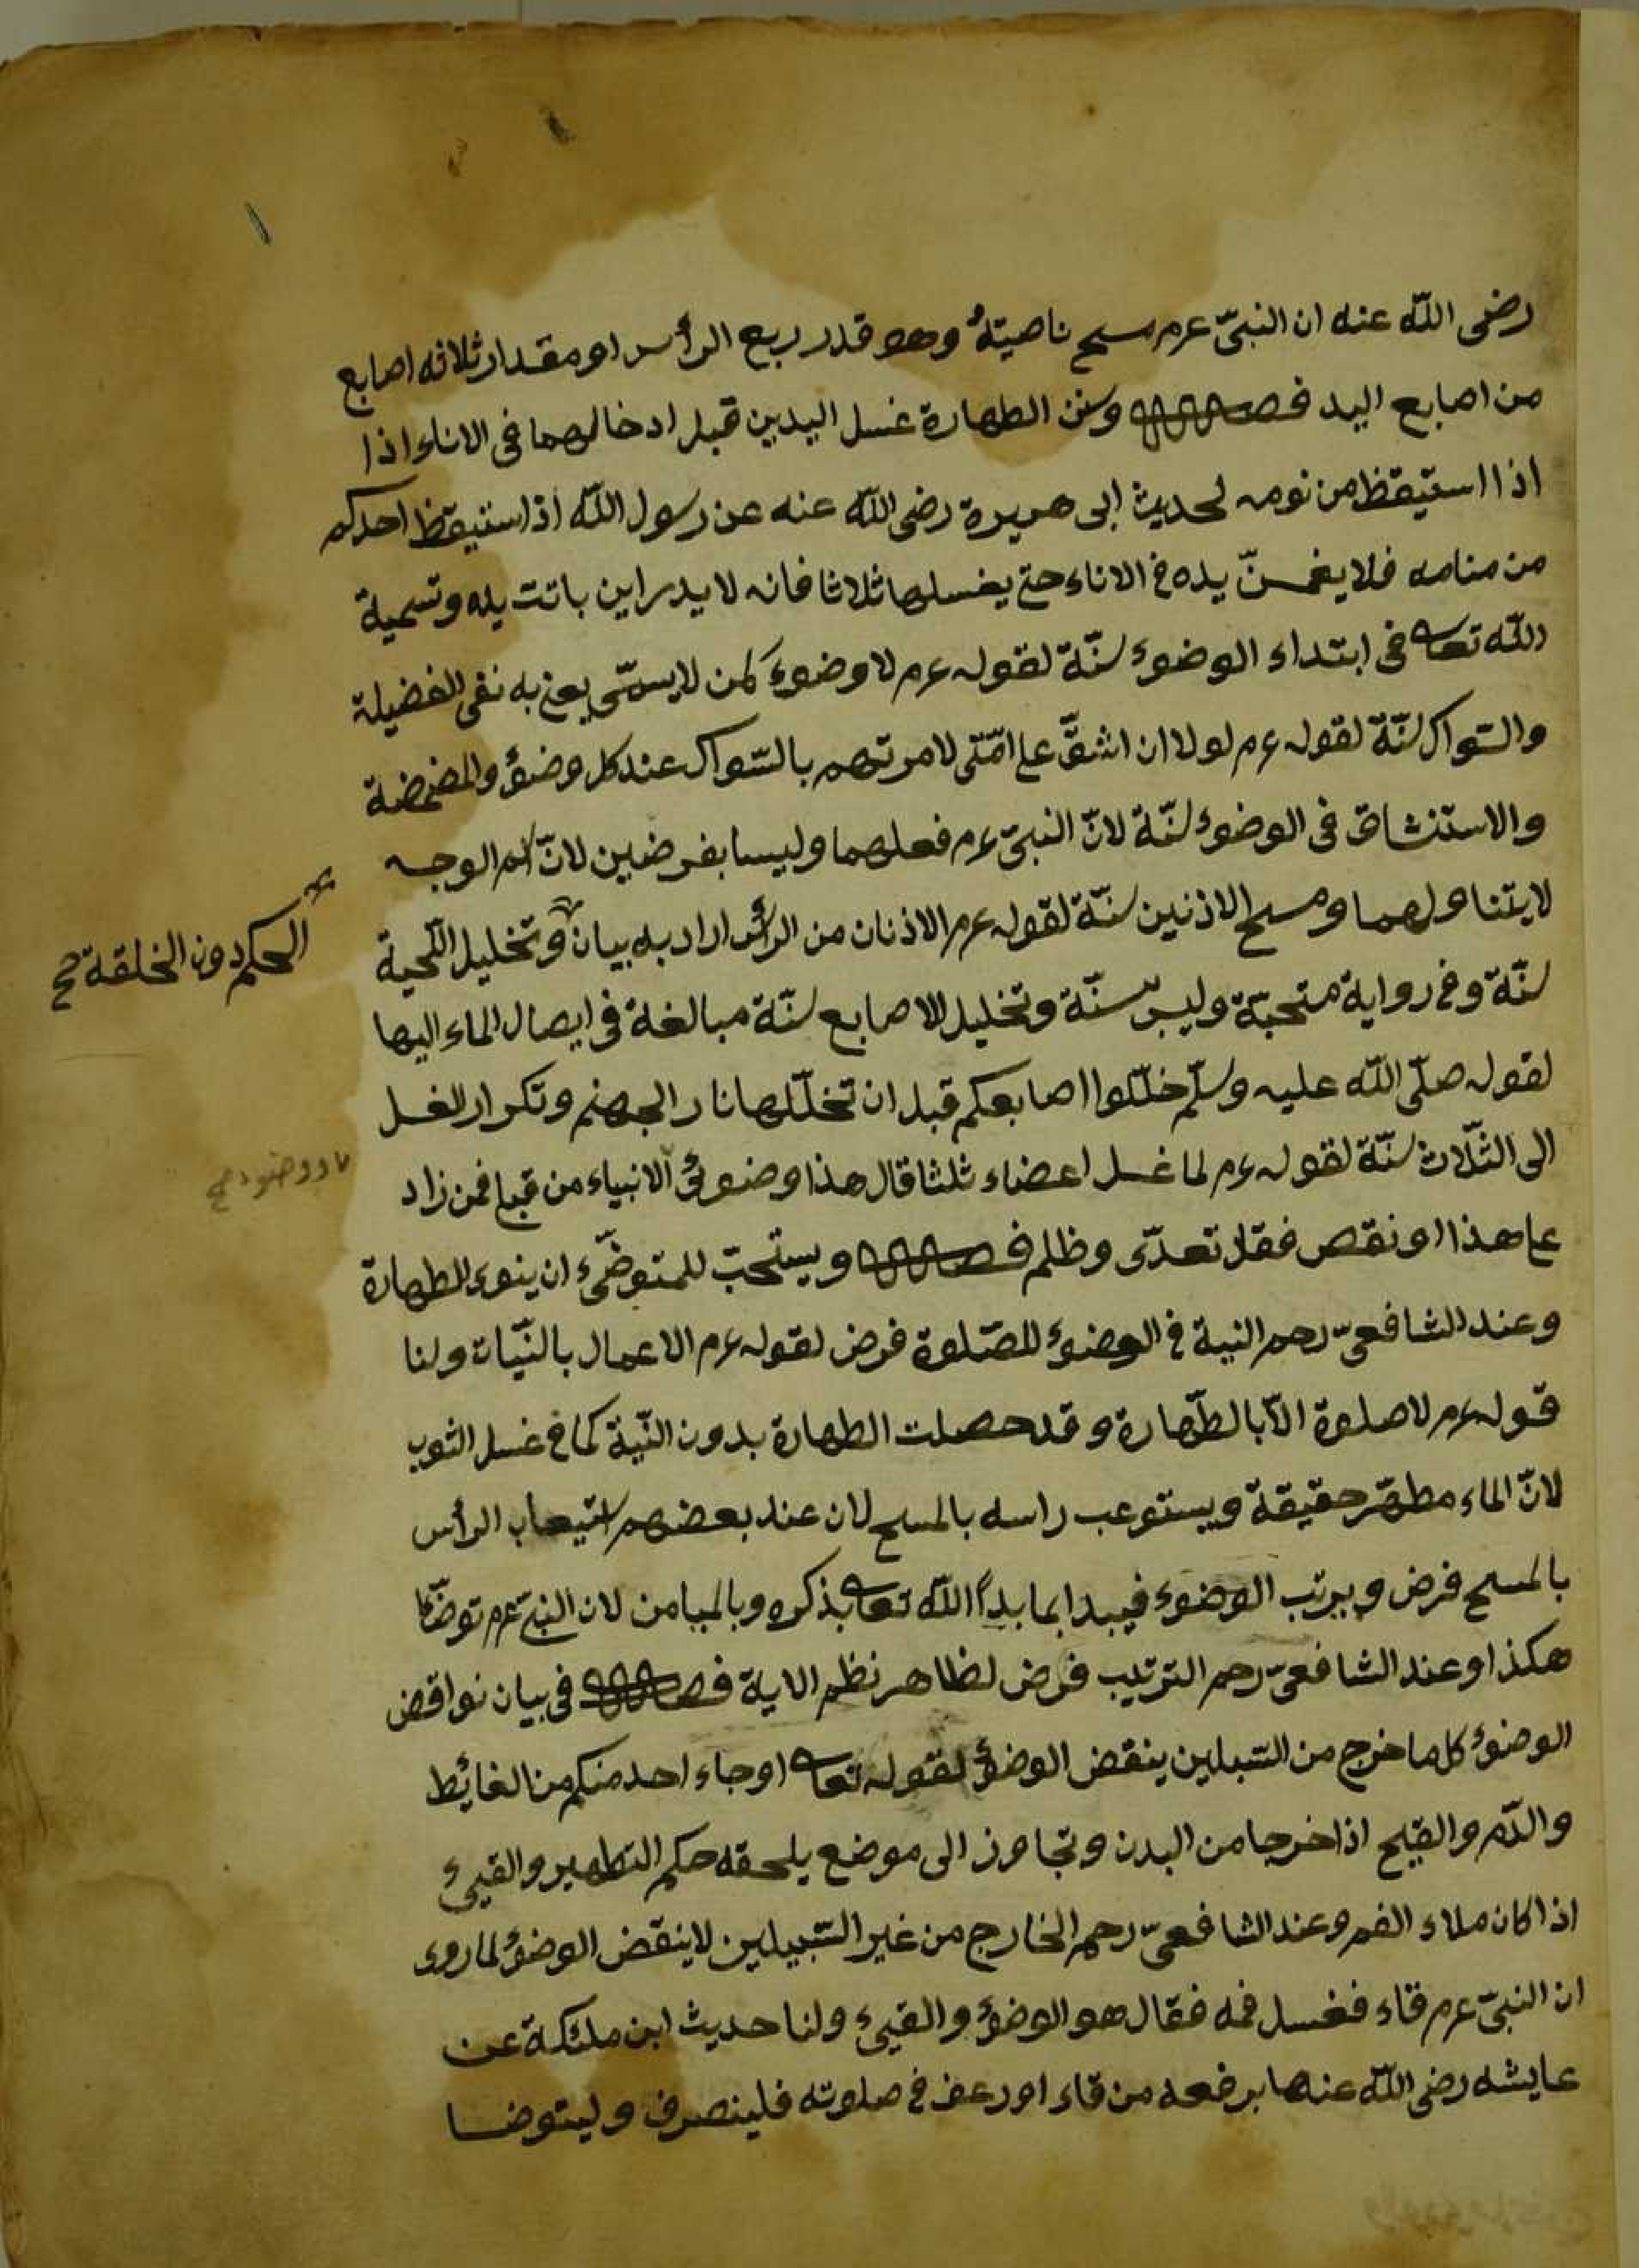 رضى اللّه عنه ان النبىّ عرم مسح ناصيتهُ وهو قدر ربع الرأس او مقدار ثلاثه اصابع
من اصابع اليد فصل وسنن الطهارة غسل اليدين قبل ادخالهما فى الاناء اذا
اذا استيقظ من نومه لحديث ابى هريرة رضى اللّه عنه عن رسول اللّه اذا ستيقظ احدكم
من منامه فلا يغمسنّ يده فى الاناء حتى يغسلها ثلاثا فانه لا يدر اين باتت يده وتسمية
اللّه تعا فى ابتداء الوضوء سنّة لقوله عم لا وضوء لمن لا يسمّى يعنى به نفى الفضيلة
والسّواك سنّة لقوله عم لولا ان اشقّ على امّتى لامرتهم بالسّواك عند كل وضؤ والمضمضة
والاستنشاق فى الوضوء سنّة لانّ النبىّ عم فعلهما وليسا بفرضين لانّ اسم الوجه
لا يتناولهما ومسح الاذنين سنّة لقوله عم الاذنان من الرأس اراد به بيان وتخليل اللّحية
الحكم دون الخلقة صح
سنّة وفى رواية مستحبّة وليس سنّة وتخليل الاصابع سنّة مبالغة فى ايصال الماء اليها
لقوله صلّى اللّه عليه وسلّم خلّلوا اصابعكم قبل ان تخلّلها نار الجهنم وتكرار الغسل
الى الثّلاث سنّة لقوله عم لما غسل اعضاء ثلثا قال هذا وضوئى الانبياء من قبلى فمن زاد
على هذا او نقص فقد تعدّى وظلم فصل ويستحبّ للمتوضّىء ان ينوى الطهارة
وعند الشافعىّ رحم النية فى الوضوء للصّلوة فرض لقوله عم الاعمال بالنّيّات ولنا
قوله عم لا صلوة الّا بالطّهارة وقد حصلت الطهارة بدون النّية كما فى غسل الثوب
لانّ الماء مطهّر حقيقة ويستوعب راسه بالمسح لان عند بعضهم استيعاب الرأس
بالمسح فرض ويرتب الوضوء فيبدا بما بدأ اللّه تعا بذكره وبالميامن لان النبىّ عرم توضّا
هكذا وعند الشافعىّ رحم الترتيب فرض لظاهر نظم الاية فصل فى بيان نواقض
الوضوء كل ما خرج من السّبلين ينقض الوضؤ لقوله تعا او جاء احد منكم من الغائط
والدّم والقيح اذا خرجا من البدن وتجاوز الى موضع يلحقه حكم التطهير والقيئ
اذا كان ملاء الفم وعند الشافعىّ رحم الخارج من غير السّبيلين لا ينقض الوضؤ لما روى
ان النبىّ عرم قاء فغسل فمه فقال هو الوضؤ والقيء ولنا حديث ابن ملئكة عن
عايشه رضى اللّه عنها برفعه من قاء او رعف فى صلوته فلينصرف وليتوضا